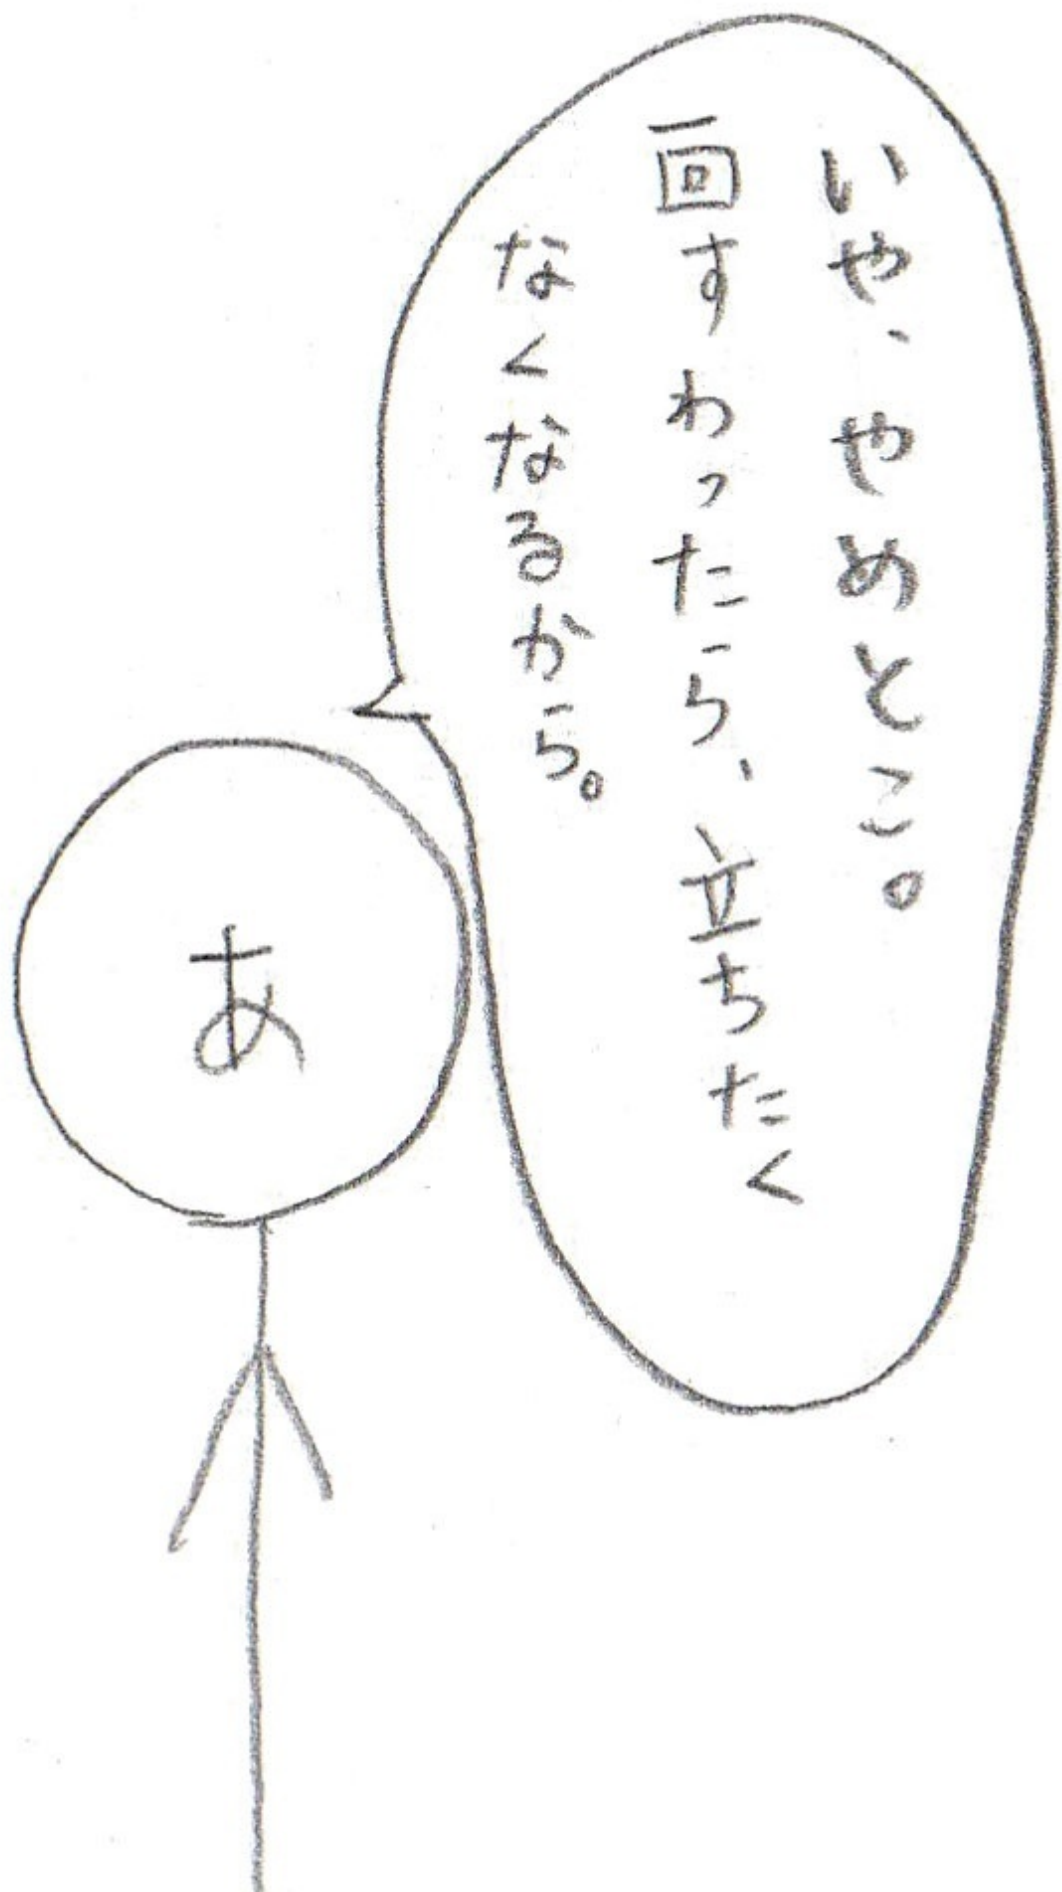 いや、やめとこ。
一回すわったら、立ちたく
なくなるから。
あ